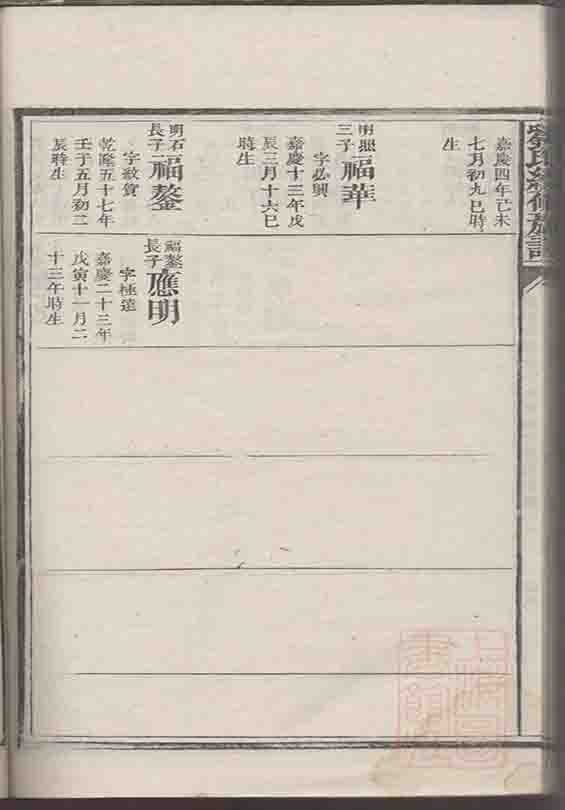 嘉慶四年己未
七月初九巳時
生
明照
三子
福華
字必興
嘉慶十三年戊
辰三月十六巳
時生
明石
長子
福鏊
字敏賢
乾隆五十七年
壬子五月初二
辰時生
福鏊
長子
應明
字極遠
嘉慶二十三年
戊寅十一月二
十三午時生